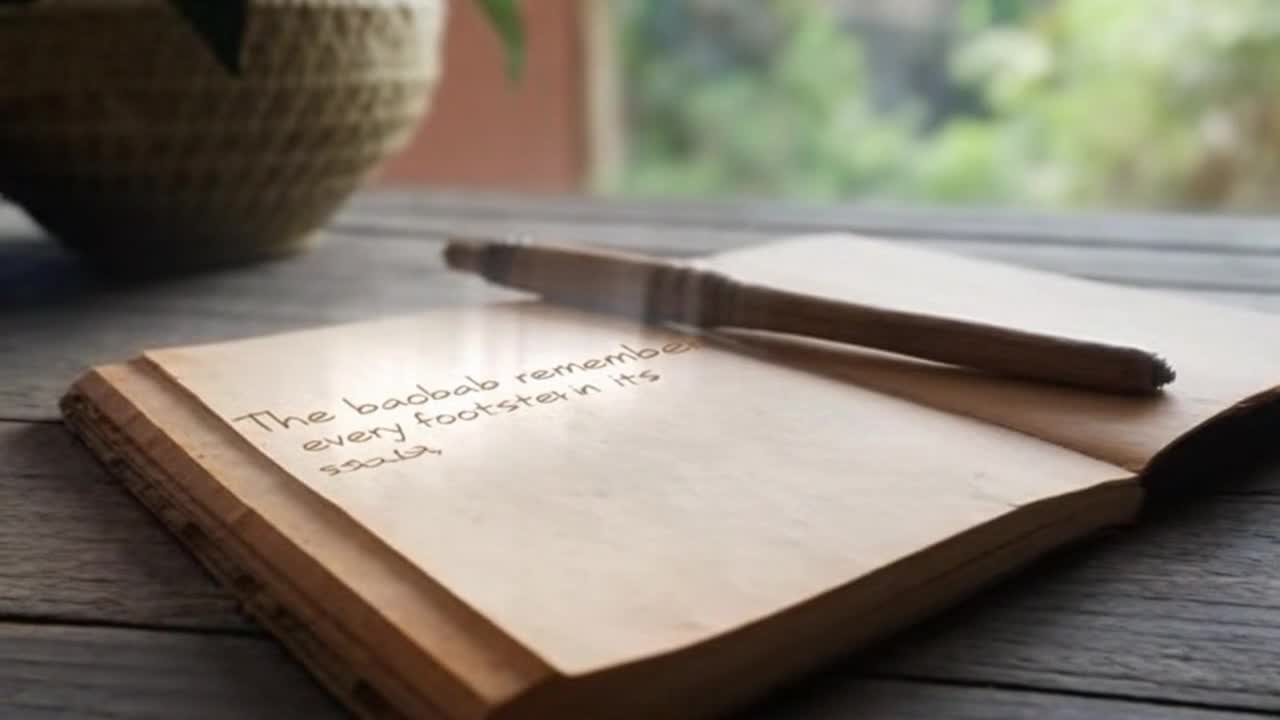 The baobab remember
every footstep in its